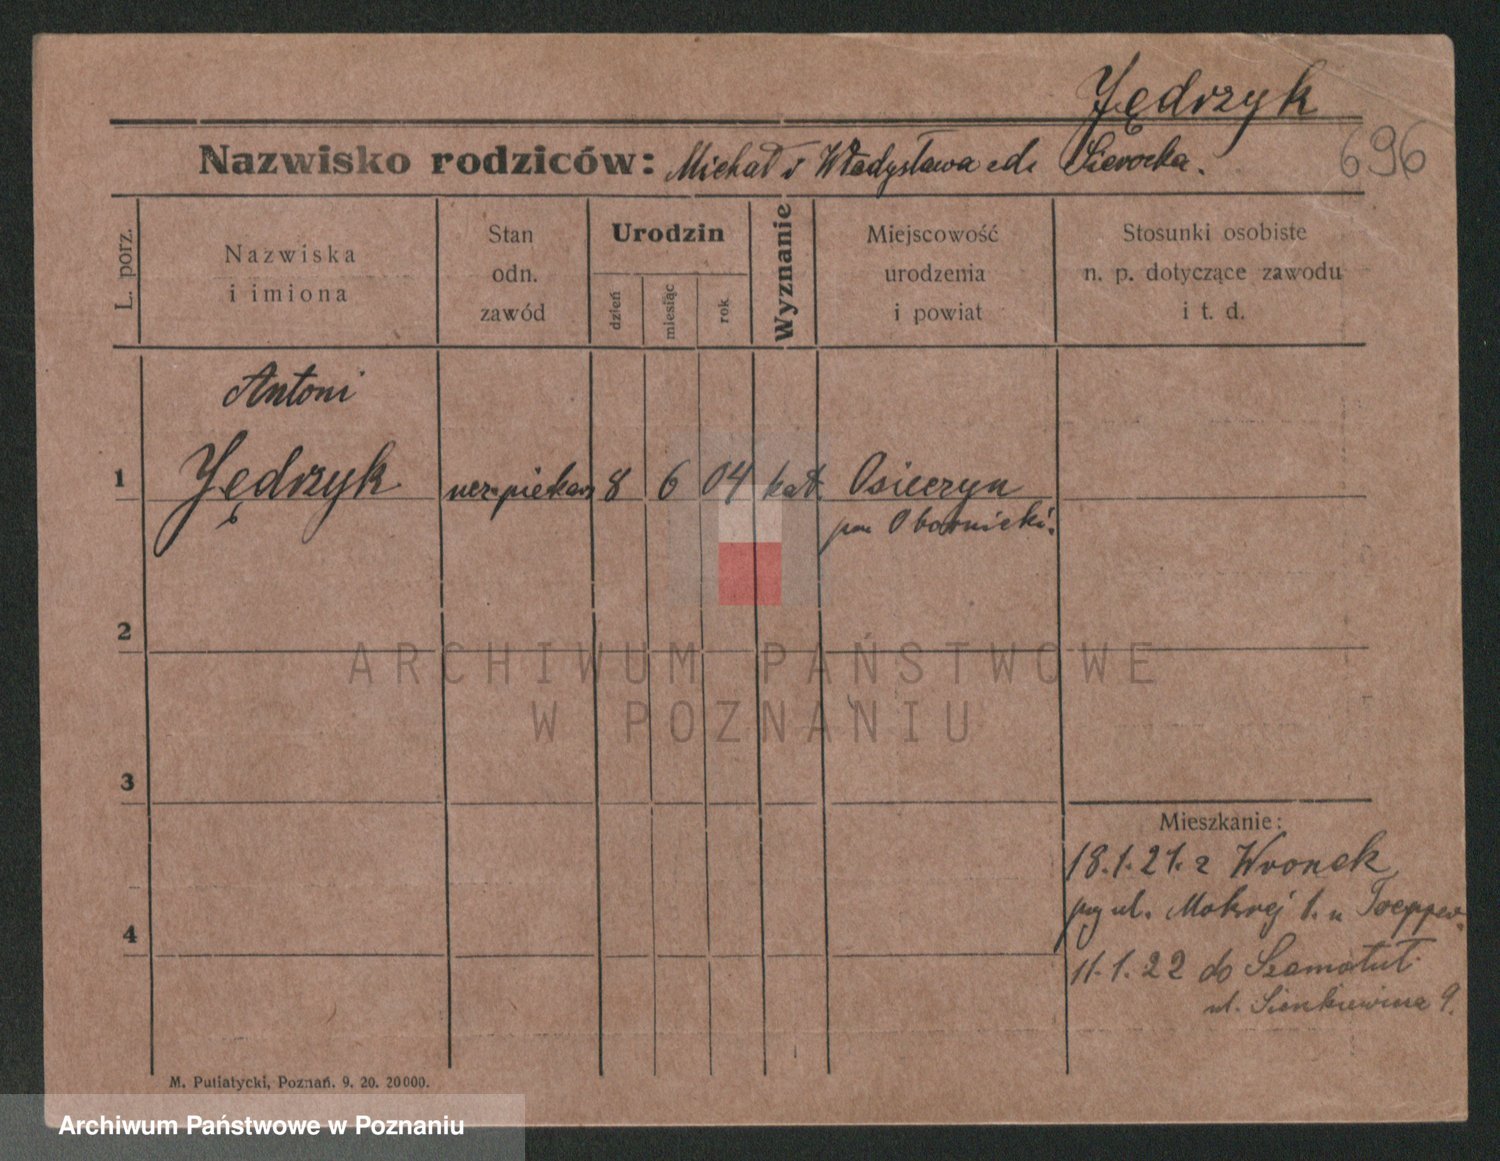 Jędrzyk
Nazwisko rodziców: Michał i Władysława Sierocka.
696
L. porz.
Nazwiska
i imiona
Stan
odn.
zawód
Urodzin
dzień
miesiąc
rok
Wyznanie
Miejscowość
urodzenia
i powiat
Stosunki osobiste
n. p. dotyczące zawodu
i t. d.
Antoni
1 Jędrzyk ucz. piekar. 8 6 04 kat. Osieczyn
pow Obornicki.
2
ARCHIWUM PAŃSTWOWE
W POZNANIU
3
Mieszkanie:
18.1.21. z Wronek
przy ul. Mokrej 1. u
4
11.1.22 do Szamotuł
ul. Sienkiewicza 9.
M. Putiatycki, Poznań. 9. 20. 20000.
Archiwum Państwowe w Poznaniu